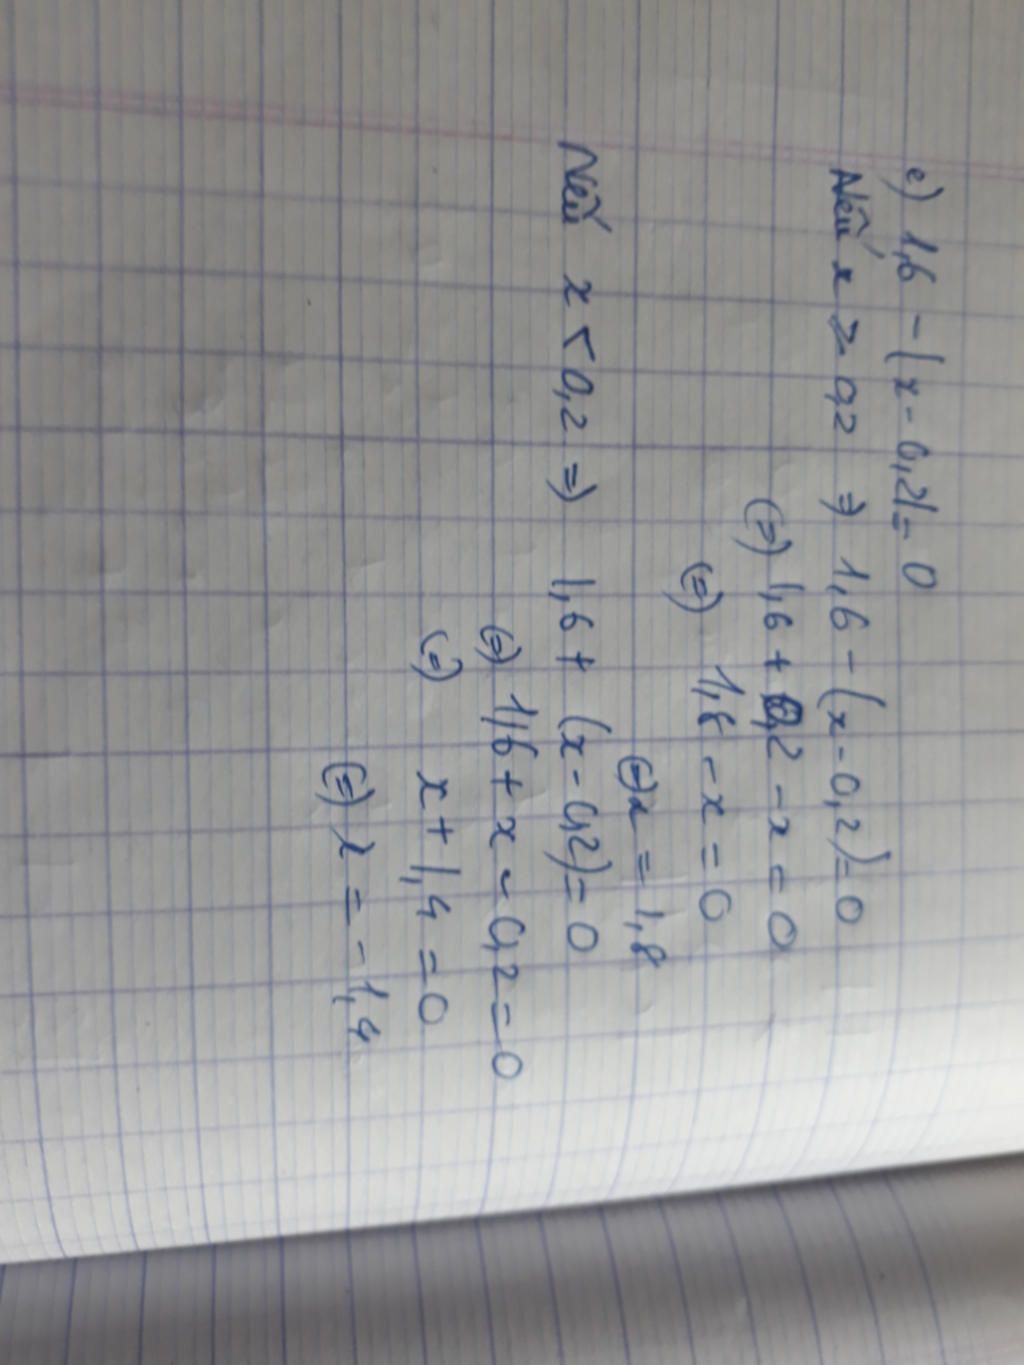 e) 1,6 - |x - 0,2| = 0
Nếu x ≥ 0,2 => 1,6 - (x - 0,2) = 0
(=) 1,6 + 0,2 - x = 0
(=) 1,8 - x = 0
(=) x = 1,8
Nếu x < 0,2 => 1,6 + (x - 0,2) = 0
(=) 1,6 + x - 0,2 = 0
(=) x + 1,4 = 0
(=) x = -1,4